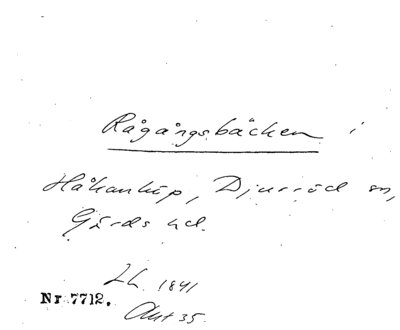 Rågångsbäcken i
Håkanköp, Djurröd sn,
Gärds hd.
Lh. 1841
Nr 7712.
Akt 35.